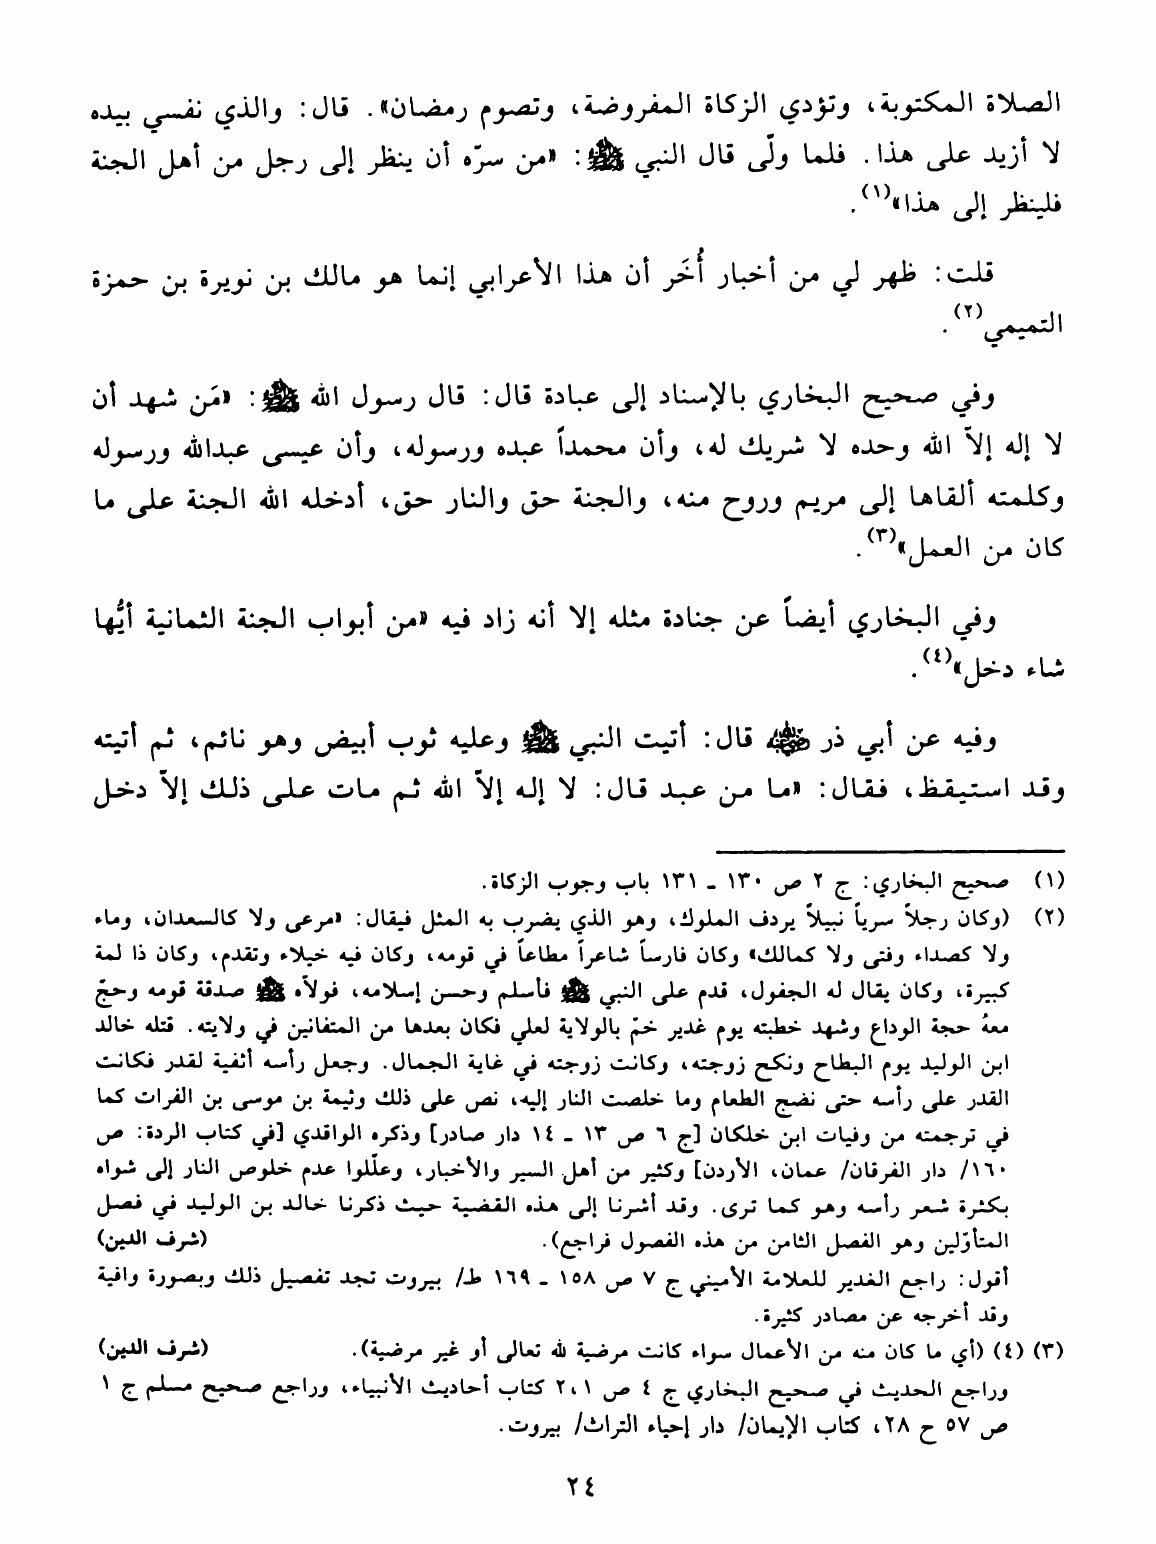 الصلاة المكتوبة، وتؤدي الزكاة المفروضة، وتصوم رمضان». قال: والذي نفسي بيده
لا أزيد على هذا. فلما ولّى قال النبي ﷺ: «من سرّه أن ينظر إلى رجل من أهل الجنة
فلينظر إلى هذا»(١).
قلت: ظهر لي من أخبار أُخَر أن هذا الأعرابي إنما هو مالك بن نويرة بن حمزة
التميمي(٢).
وفي صحيح البخاري بالإسناد إلى عبادة قال: قال رسول الله ﷺ: «مَن شهد أن
لا إله إلاّ الله وحده لا شريك له، وأن محمداً عبده ورسوله، وأن عيسى عبدالله ورسوله
وكلمته ألقاها إلى مريم وروح منه، والجنة حق والنار حق، أدخله الله الجنة على ما
كان من العمل»(٣).
وفي البخاري أيضاً عن جنادة مثله إلا أنه زاد فيه «من أبواب الجنة الثمانية أيُّها
شاء دخل»(٤).
وفيه عن أبي ذر رضي الله عنه قال: أتيت النبي ﷺ وعليه ثوب أبيض وهو نائم، ثم أتيته
وقد استيقظ، فقال: «ما من عبد قال: لا إله إلاّ الله ثم مات على ذلك إلاّ دخل
(١) صحيح البخاري: ج ٢ ص ١٣٠ ـ ١٣١ باب وجوب الزكاة.
(٢) (وكان رجلاً سرياً نبيلاً يردف الملوك، وهو الذي يضرب به المثل فيقال: «مرعى ولا كالسعدان، وماء
ولا كصداء وفتى ولا كمالك» وكان فارساً شاعراً مطاعاً في قومه، وكان فيه خيلاء وتقدم، وكان ذا لمة
كبيرة، وكان يقال له الجفول، قدم على النبي ﷺ فأسلم وحسن إسلامه، فولاّه ﷺ صدقة قومه وحجّ
معهُ حجة الوداع وشهد خطبته يوم غدير خمّ بالولاية لعلي فكان بعدها من المتفانين في ولايته. قتله خالد
ابن الوليد يوم البطاح ونكح زوجته، وكانت زوجته في غاية الجمال. وجعل رأسه أثفية لقدر فكانت
القدر على رأسه حتى نضج الطعام وما خلصت النار إليه، نص على ذلك وثيمة بن موسى بن الفرات كما
في ترجمته من وفيات ابن خلكان [ج ٦ ص ١٣ ـ ١٤ دار صادر] وذكره الواقدي [في كتاب الردة: ص
١٦٠/ دار الفرقان/ عمان، الأردن] وكثير من أهل السير والأخبار، وعلّلوا عدم خلوص النار إلى شواه
بكثرة شعر رأسه وهو كما ترى. وقد أشرنا إلى هذه القضية حيث ذكرنا خالد بن الوليد في فصل
المتأوّلين وهو الفصل الثامن من هذه الفصول فراجع). (شرف الدين)
أقول: راجع الغدير للعلامة الأميني ج ٧ ص ١٥٨ ـ ١٦٩ ط/ بيروت تجد تفصيل ذلك وبصورة وافية
وقد أخرجه عن مصادر كثيرة.
(٣) (٤) (أي ما كان منه من الأعمال سواء كانت مرضية لله تعالى أو غير مرضية). (شرف الدين)
وراجع الحديث في صحيح البخاري ج ٤ ص ٢،١ كتاب أحاديث الأنبياء، وراجع صحيح مسلم ج ١
ص ٥٧ ح ٢٨، كتاب الإيمان/ دار إحياء التراث/ بيروت.
٢٤